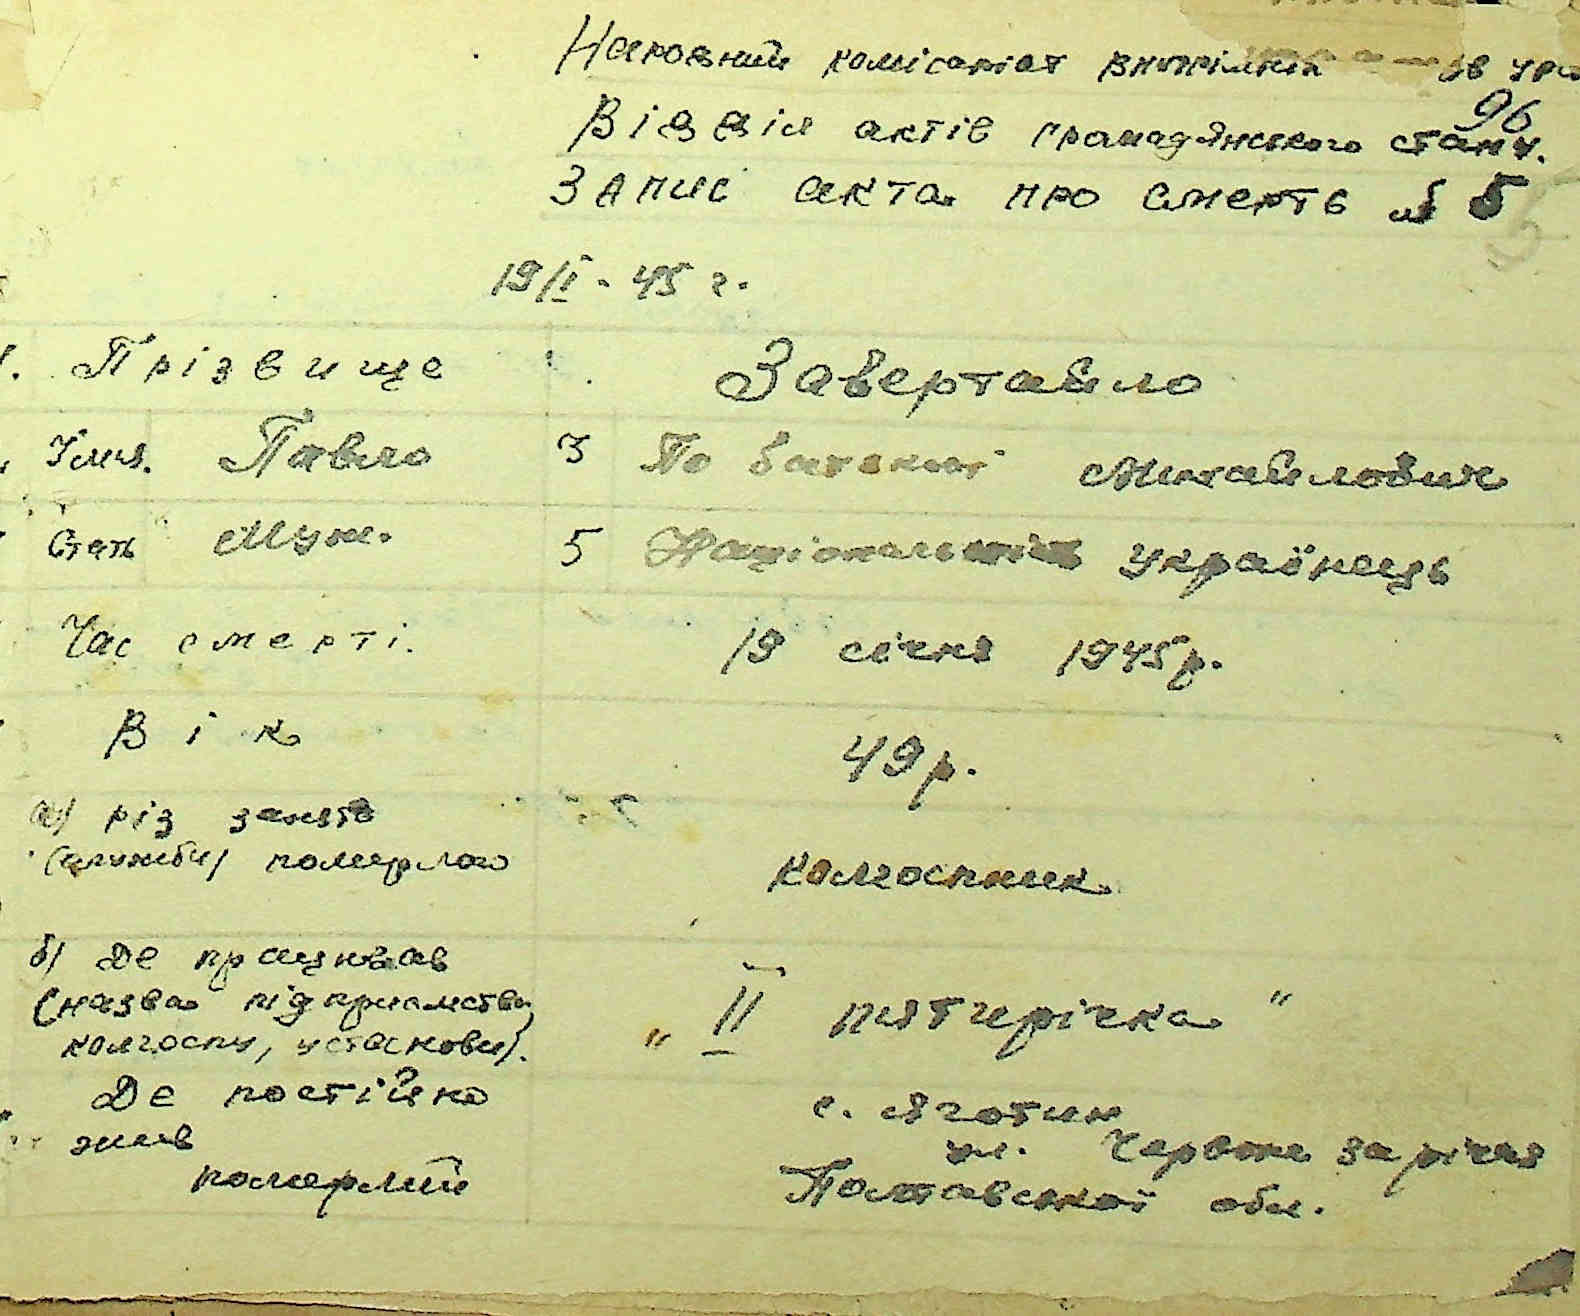 Народний комісаріат внутрішніх УРС
96
Відділ актів громадянського стану.
Запис акта про смерть № 5
19/I - 45 г.
1. Прізвище Завертайло
Імя. Павло 3 По батькові Михайлович
Стать Муж. 5 Національність Українець
Час смерті. 19 січня 1945 р.
Вік 49 р.
а) різ занять
(служби) померлого колгоспник
б) Де працював
(назва підприємства, „II пятирічка"
колгоспу, установи).
Де постійно с. Яготин
жив ул. Червоне заріччя
померлий Полтавської обл.